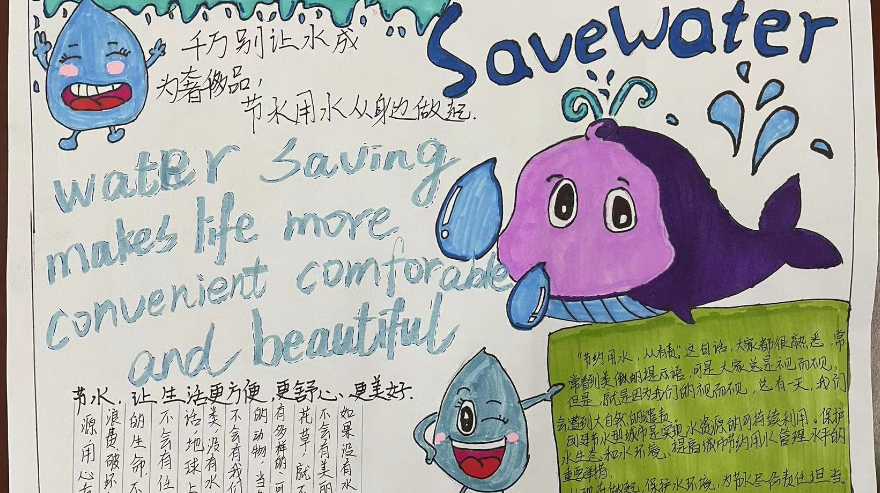 Savewater
千万别让水成
为奢侈品，
节水用水从身边做起.
water saving
makes life more
convenient comforable
and beautiful
节水，让生活更方便、更舒心、更美好.
如果没有水
不会有美丽
花草，就不
有多样的
的动物，当
不会有我们
类，没有水
话地球上
不会有任
的生命，不
浪费破坏
源用心
"节约用水，从我做起"这句话，大家都很熟悉，常
常看到类似的提示语，可是大家总是视而不见，
但是，就是因为我们的视而不见，总有一天，我们
会遭到大自然的
创建节水型城市是实现水资源的可持续利用、保护
水生态和水环境、提高城市节约用水管理水平的
重要举措
做起，保护水环境，为节水尽份责任担当。